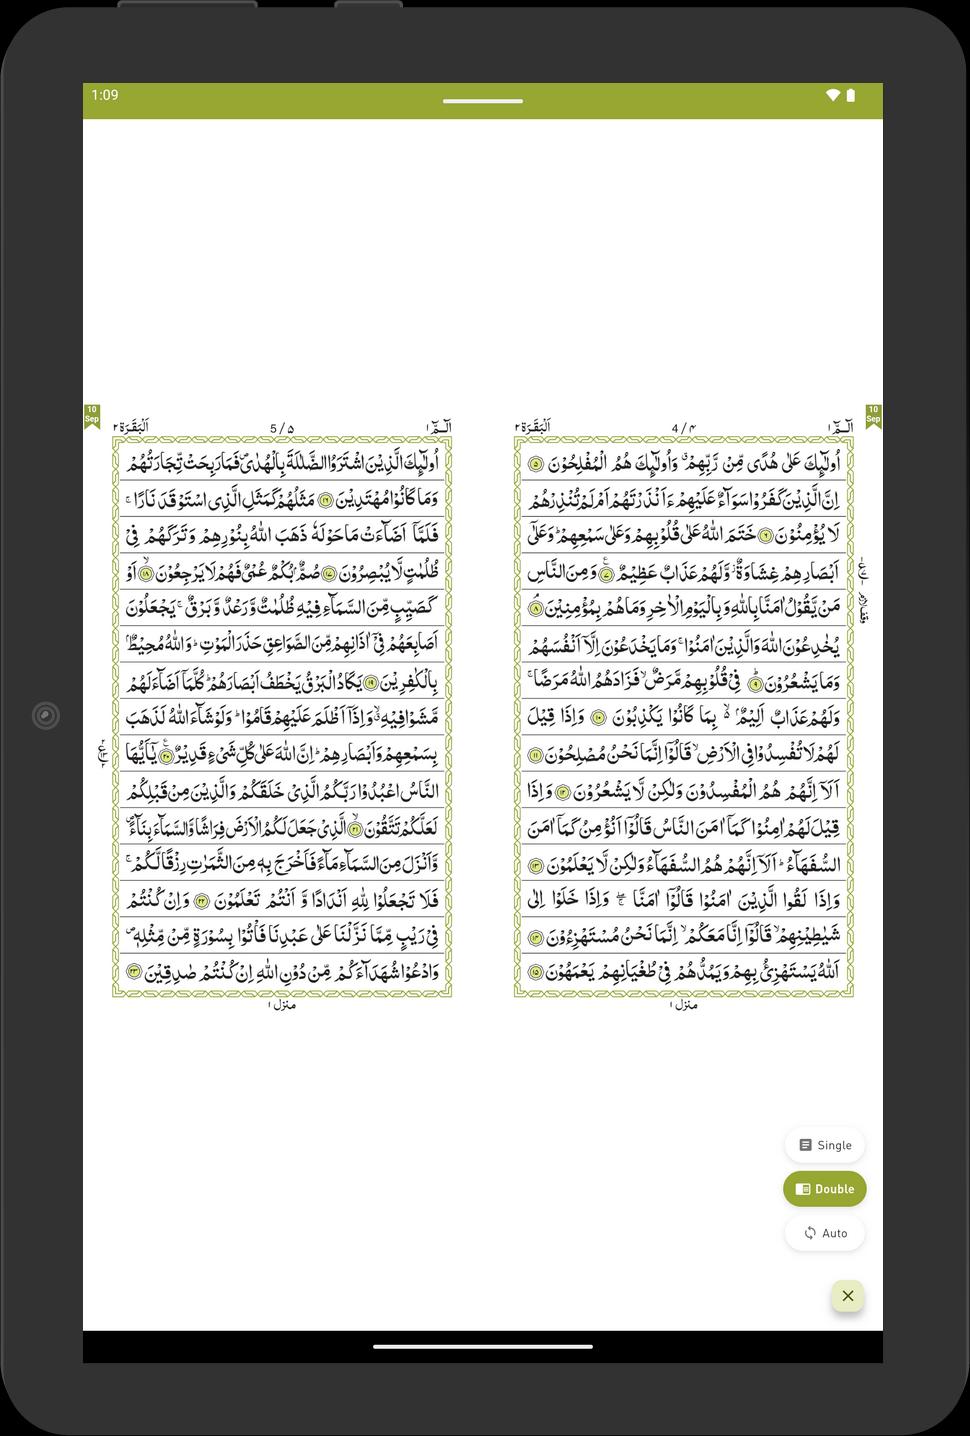 1:09
10
Sep
الٓـمّٓ ۱
4 / ۴
اَلْبَقَرَة ۲
اُولٰٓئِكَ عَلٰى هُدًى مِّنْ رَّبِّهِمْ ۗ وَاُولٰٓئِكَ هُمُ الْمُفْلِحُوْنَ ۵
اِنَّ الَّذِيْنَ كَفَرُوْا سَوَآءٌ عَلَيْهِمْ ءَاَنْذَرْتَهُمْ اَمْ لَمْ تُنْذِرْهُمْ
لَا يُؤْمِنُوْنَ ۶ خَتَمَ اللّٰهُ عَلٰى قُلُوْبِهِمْ وَعَلٰى سَمْعِهِمْ ؕ وَعَلٰٓى
اَبْصَارِهِمْ غِشَاوَةٌ ؗ وَّلَهُمْ عَذَابٌ عَظِيْمٌ ۷ وَمِنَ النَّاسِ
مَنْ يَّقُوْلُ اٰمَنَّا بِاللّٰهِ وَبِالْيَوْمِ الْاٰخِرِ وَمَا هُمْ بِمُؤْمِنِيْنَ ۸
يُخٰدِعُوْنَ اللّٰهَ وَالَّذِيْنَ اٰمَنُوْا ۚ وَمَا يَخْدَعُوْنَ اِلَّآ اَنْفُسَهُمْ
وَمَا يَشْعُرُوْنَ ۹ فِيْ قُلُوْبِهِمْ مَّرَضٌ ۙ فَزَادَهُمُ اللّٰهُ مَرَضًا ۚ
وَلَهُمْ عَذَابٌ اَلِيْمٌۢ ۙ بِمَا كَانُوْا يَكْذِبُوْنَ ۱۰ وَاِذَا قِيْلَ
لَهُمْ لَا تُفْسِدُوْا فِى الْاَرْضِ ۙ قَالُوْٓا اِنَّمَا نَحْنُ مُصْلِحُوْنَ ۱۱
اَلَآ اِنَّهُمْ هُمُ الْمُفْسِدُوْنَ وَلٰكِنْ لَّا يَشْعُرُوْنَ ۱۲ وَاِذَا
قِيْلَ لَهُمْ اٰمِنُوْا كَمَآ اٰمَنَ النَّاسُ قَالُوْٓا اَنُؤْمِنُ كَمَآ اٰمَنَ
السُّفَهَآءُ ؕ اَلَآ اِنَّهُمْ هُمُ السُّفَهَآءُ وَلٰكِنْ لَّا يَعْلَمُوْنَ ۱۳
وَاِذَا لَقُوا الَّذِيْنَ اٰمَنُوْا قَالُوْٓا اٰمَنَّا ۖ وَاِذَا خَلَوْا اِلٰى
شَيٰطِيْنِهِمْ ۙ قَالُوْٓا اِنَّا مَعَكُمْ ۙ اِنَّمَا نَحْنُ مُسْتَهْزِءُوْنَ ۱۴
اَللّٰهُ يَسْتَهْزِئُ بِهِمْ وَيَمُدُّهُمْ فِيْ طُغْيَانِهِمْ يَعْمَهُوْنَ ۱۵
منزل ۱
10
Sep
الٓـمّٓ ۱
5 / ۵
اَلْبَقَرَة ۲
اُولٰٓئِكَ الَّذِيْنَ اشْتَرَوُا الضَّلٰلَةَ بِالْهُدٰى ۪ فَمَا رَبِحَتْ تِّجَارَتُهُمْ
وَمَا كَانُوْا مُهْتَدِيْنَ ۱۶ مَثَلُهُمْ كَمَثَلِ الَّذِى اسْتَوْقَدَ نَارًا ۚ
فَلَمَّآ اَضَآءَتْ مَا حَوْلَهٗ ذَهَبَ اللّٰهُ بِنُوْرِهِمْ وَتَرَكَهُمْ فِيْ
ظُلُمٰتٍ لَّا يُبْصِرُوْنَ ۱۷ صُمٌّۢ بُكْمٌ عُمْيٌ فَهُمْ لَا يَرْجِعُوْنَ ۱۸ اَوْ
كَصَيِّبٍ مِّنَ السَّمَآءِ فِيْهِ ظُلُمٰتٌ وَّرَعْدٌ وَّبَرْقٌ ۚ يَجْعَلُوْنَ
اَصَابِعَهُمْ فِيْٓ اٰذَانِهِمْ مِّنَ الصَّوَاعِقِ حَذَرَ الْمَوْتِ ؕ وَاللّٰهُ مُحِيْطٌۢ
بِالْكٰفِرِيْنَ ۱۹ يَكَادُ الْبَرْقُ يَخْطَفُ اَبْصَارَهُمْ ؕ كُلَّمَآ اَضَآءَ لَهُمْ
مَّشَوْا فِيْهِ ۙ وَاِذَآ اَظْلَمَ عَلَيْهِمْ قَامُوْا ؕ وَلَوْ شَآءَ اللّٰهُ لَذَهَبَ
بِسَمْعِهِمْ وَاَبْصَارِهِمْ ؕ اِنَّ اللّٰهَ عَلٰى كُلِّ شَيْءٍ قَدِيْرٌ ۲۰ يٰٓاَيُّهَا
النَّاسُ اعْبُدُوْا رَبَّكُمُ الَّذِيْ خَلَقَكُمْ وَالَّذِيْنَ مِنْ قَبْلِكُمْ
لَعَلَّكُمْ تَتَّقُوْنَ ۲۱ الَّذِيْ جَعَلَ لَكُمُ الْاَرْضَ فِرَاشًا وَّالسَّمَآءَ بِنَآءً ۪
وَّاَنْزَلَ مِنَ السَّمَآءِ مَآءً فَاَخْرَجَ بِهٖ مِنَ الثَّمَرٰتِ رِزْقًا لَّكُمْ ۚ
فَلَا تَجْعَلُوْا لِلّٰهِ اَنْدَادًا وَّ اَنْتُمْ تَعْلَمُوْنَ ۲۲ وَاِنْ كُنْتُمْ
فِيْ رَيْبٍ مِّمَّا نَزَّلْنَا عَلٰى عَبْدِنَا فَاْتُوْا بِسُوْرَةٍ مِّنْ مِّثْلِهٖ ۪
وَادْعُوْا شُهَدَآءَكُمْ مِّنْ دُوْنِ اللّٰهِ اِنْ كُنْتُمْ صٰدِقِيْنَ ۲۳
منزل ۱
Single
Double
Auto